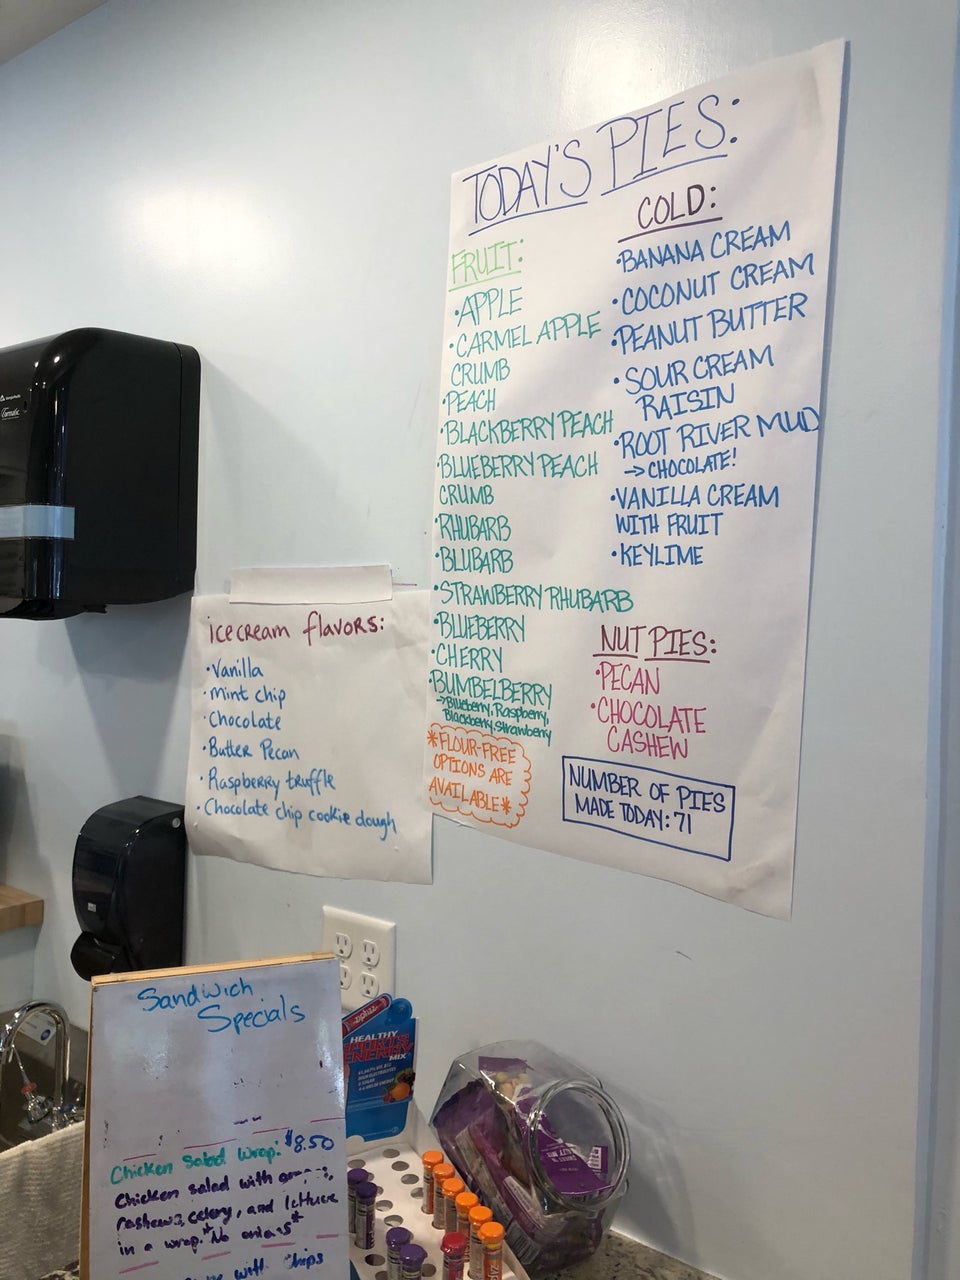 TODAY'S PIES:
FRUIT:
•APPLE
•CARMEL APPLE
CRUMB
•PEACH
•BLACKBERRY PEACH
•BLUEBERRY PEACH
CRUMB
•RHUBARB
•BLUBARB
•STRAWBERRY RHUBARB
•BLUEBERRY
•CHERRY
•BUMBELBERRY
→Blueberry, Raspberry,
Blackberry, Strawberry
*FLOUR-FREE
OPTIONS ARE
AVAILABLE*
COLD:
•BANANA CREAM
•COCONUT CREAM
•PEANUT BUTTER
•SOUR CREAM
RAISIN
•ROOT RIVER MUD
→CHOCOLATE!
•VANILLA CREAM
WITH FRUIT
•KEYLIME
NUT PIES:
•PECAN
•CHOCOLATE
CASHEW
NUMBER OF PIES
MADE TODAY: 71
icecream flavors:
•Vanilla
•Mint chip
•Chocolate
•Butter Pecan
•Raspberry truffle
•Chocolate chip cookie dough
Sandwich
Specials
Chicken Salad Wrap: $8.50
Chicken salad with
cashews, celery, and lettuce
in a wrap. *No onions*
with chips
HEALTHY
SPORTS
ENERGY
MIX